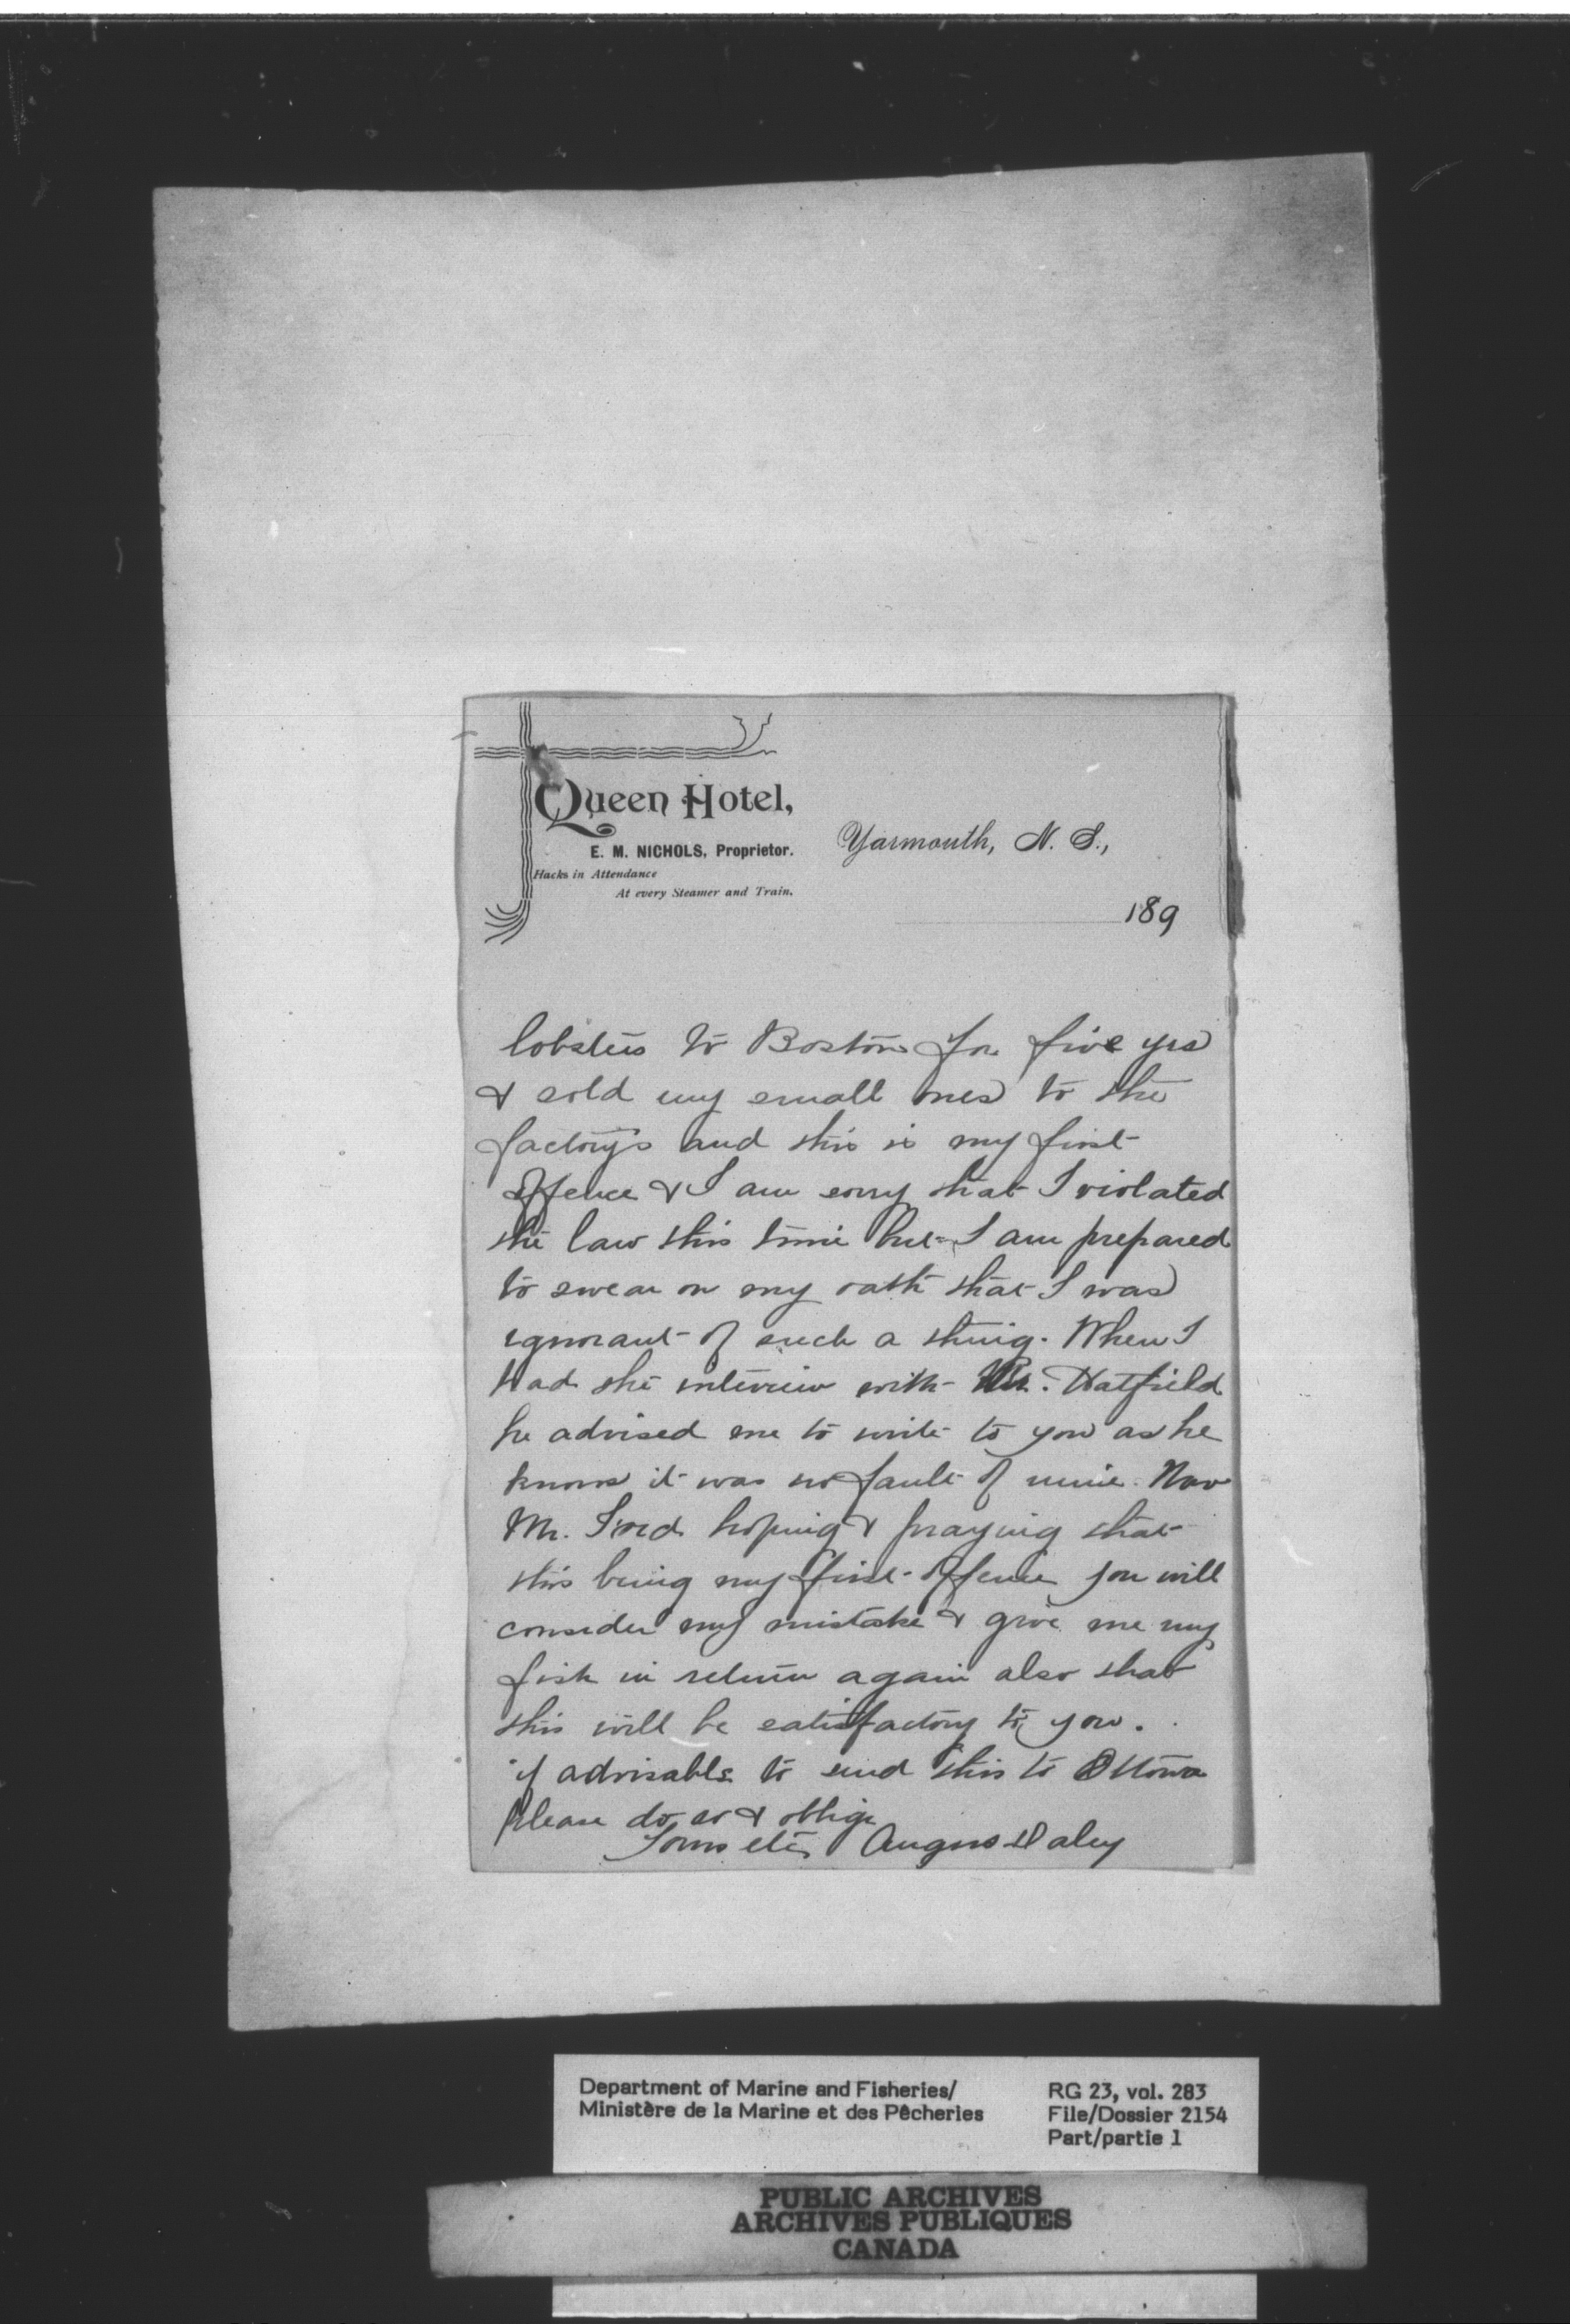 Queen Hotel,
E. M. NICHOLS, Proprietor.
Hacks in Attendance
At every Steamer and Train.
Yarmouth, N. S.,
189
lobsters to Boston for five yrs
& sold my small ones to the
factorys and this is my first
offence & I am sorry that I violated
the law this time but I am prepared
to swear on my oath that I was
ignorant of such a thing. When I
had the interview with Mr. Hatfield
he advised me to write to you as he
knows it was no fault of mine. Now
Mr. Ford hoping & praying that
this being my first offence you will
consider my mistake & give me my
fish in return again also that
this will be satisfactory to you.
if advisable to send this to Ottowa
Please do so & oblige
Yours etc Angus Daley
Department of Marine and Fisheries/
Ministère de la Marine et des Pêcheries
RG 23, vol. 283
File/Dossier 2154
Part/partie 1
PUBLIC ARCHIVES
ARCHIVES PUBLIQUES
CANADA